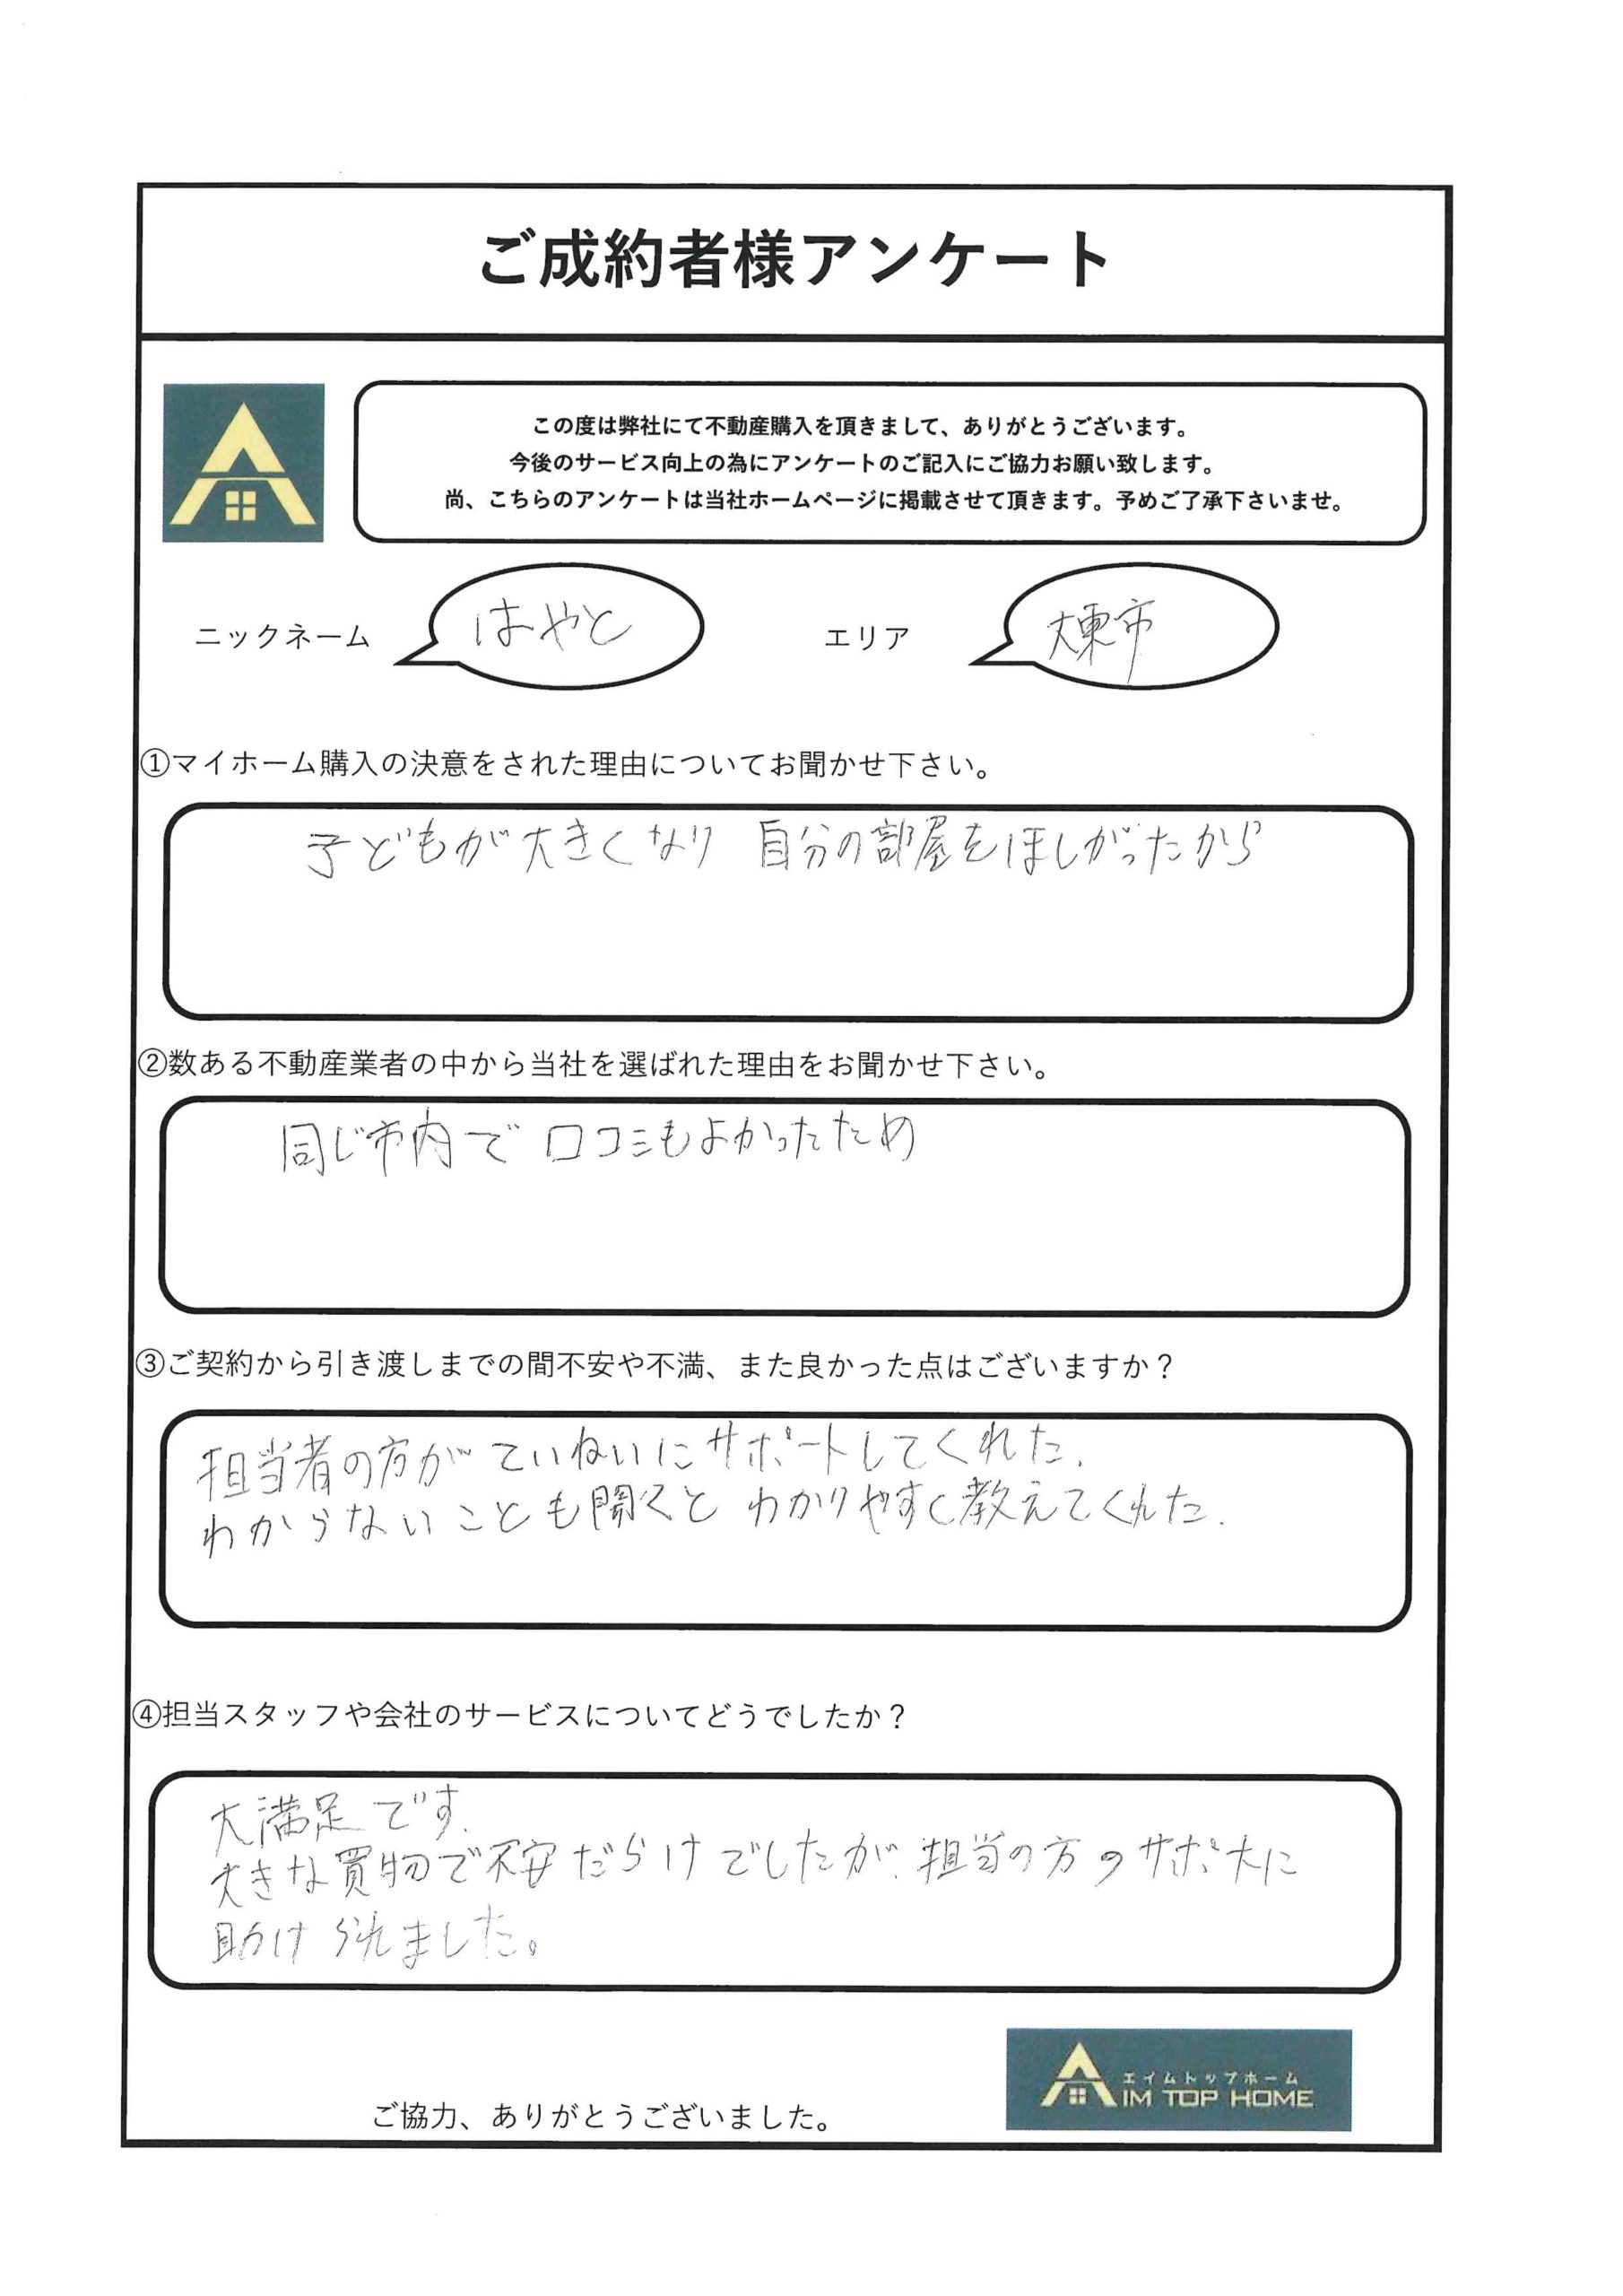 ご成約者様アンケート
この度は弊社にて不動産購入を頂きまして、ありがとうございます。
今後のサービス向上の為にアンケートのご記入にご協力お願い致します。
尚、こちらのアンケートは当社ホームページに掲載させて頂きます。予めご了承下さいませ。
ニックネーム はやと エリア 大東市
①マイホーム購入の決意をされた理由についてお聞かせ下さい。
子どもが大きくなり 自分の部屋をほしがったから
②数ある不動産業者の中から当社を選ばれた理由をお聞かせ下さい。
同じ市内で 口コミもよかったため
③ご契約から引き渡しまでの間不安や不満、また良かった点はございますか？
担当者の方がていねいにサポートしてくれた.
わからないことも聞くと わかりやすく教えてくれた.
④担当スタッフや会社のサービスについてどうでしたか？
大満足です.
大きな買物で不安だらけでしたが、担当の方のサポートに
助けられました。
エイムトップホーム
AIM TOP HOME
ご協力、ありがとうございました。